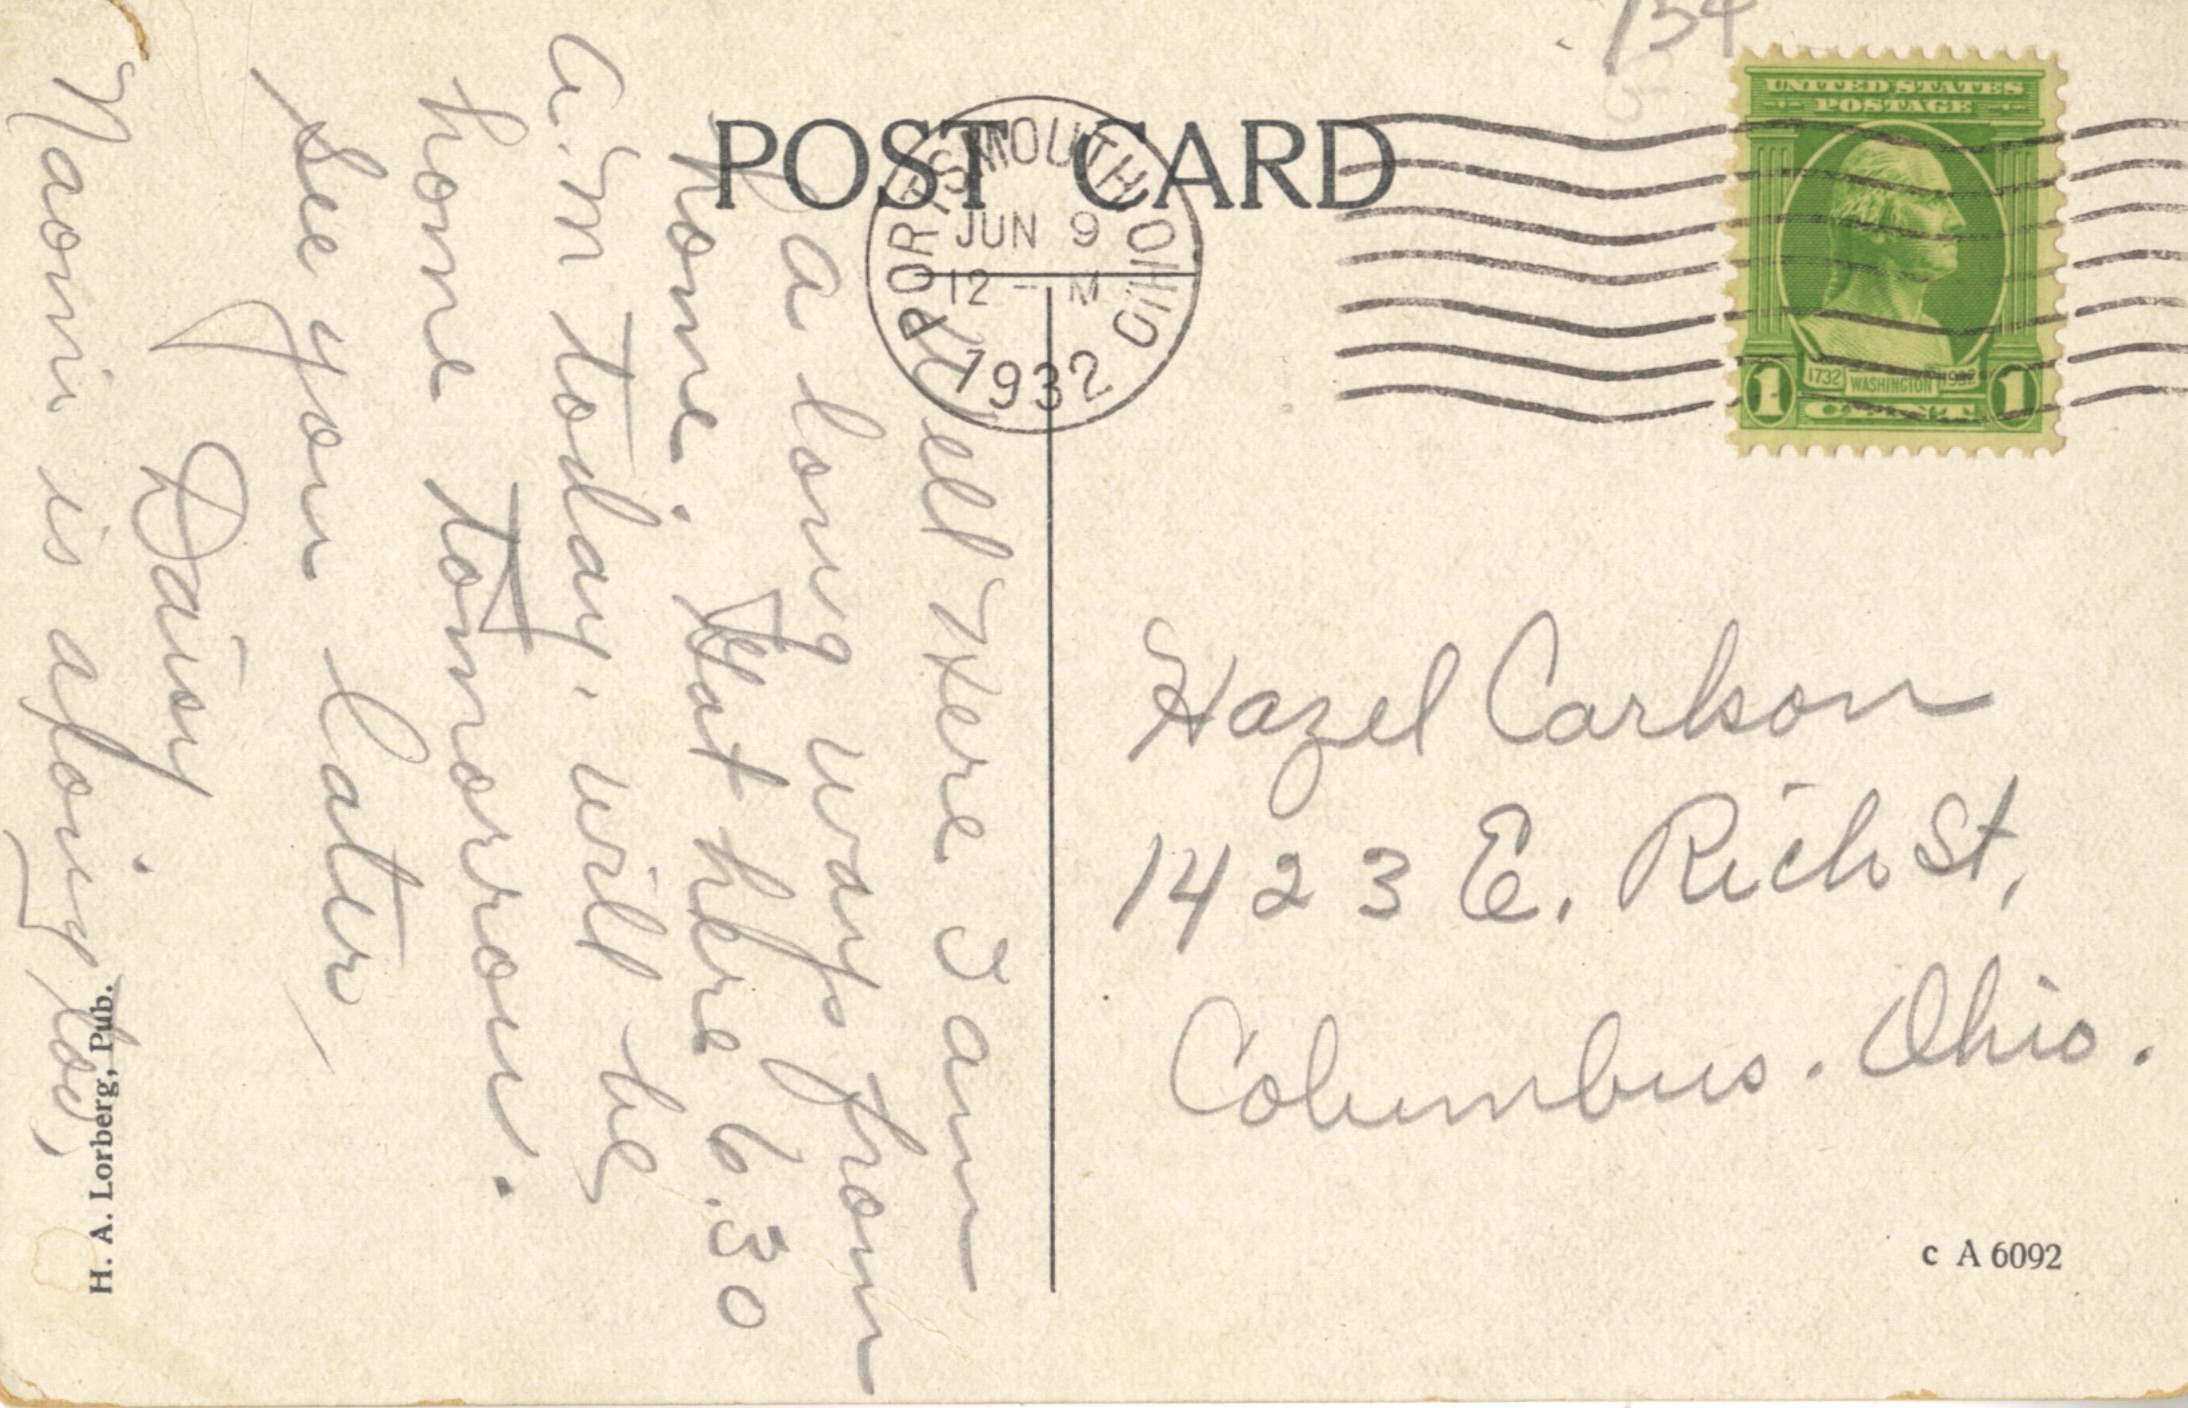 POST CARD
PORTSMOUTH OHIO
JUN 9
12 - M
1932
UNITED STATES
POSTAGE
1732 WASHINGTON 1932
1 1
Well Here I am
a long ways from
home. Got here 6.30
a.m today. will be
home tomorrow.
See you later
Daisy
Naomi is afoing too,
Hazel Carlson
1423 E. Rich St,
Columbus. Ohio.
H. A. Lorberg, Pub.
c A 6092